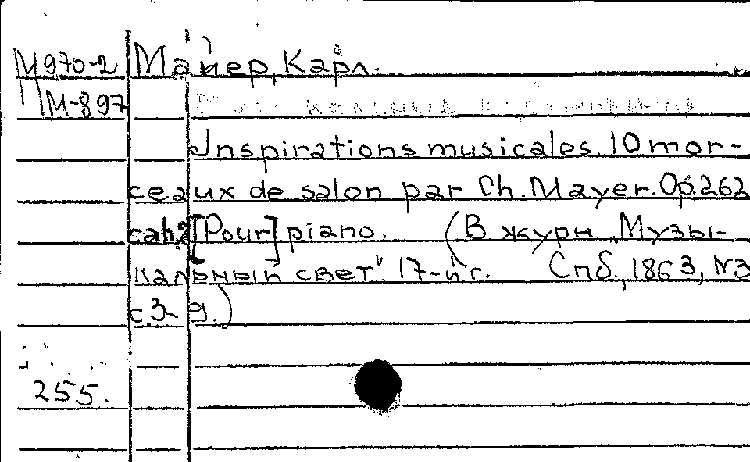 М970-2 Майер, Карл.
ПМ-897
Inspirations musicales. 10 mor-
ceaux de salon par Ch. Mayer. Op. 262
cah2 [Pour] piano. (В журн „Музы-
кальный свет" 17-й г. Спб, 1863, №3
с.3-9.)
255.